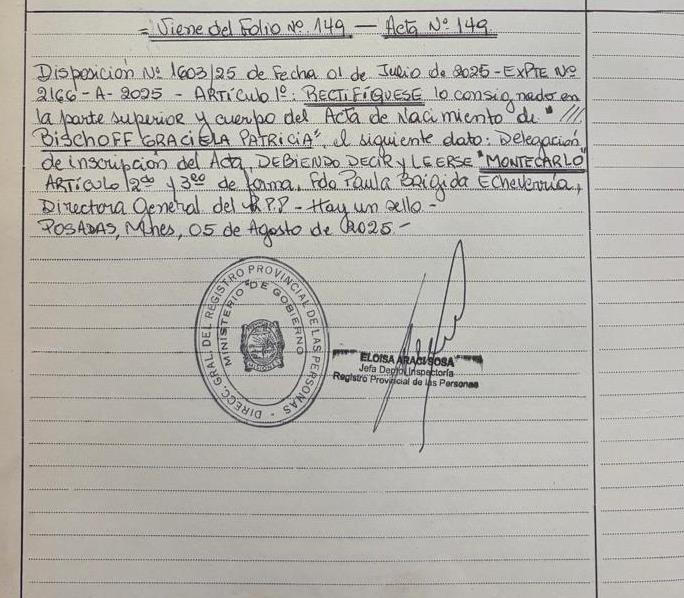 = Viene del Folio Nº 149 — Acta Nº 149
Disposición Nº 1603/25 de Fecha 01 de Julio de 2025 - EXPTE Nº
2166 - A - 2025 - ARTÍCULO 1º: RECTIFÍQUESE lo consignado en
la parte superior y cuerpo del Acta de Nacimiento de "///
BISCHOFF GRACIELA PATRICIA", el siguiente dato: Delegación
de inscripción del Acta, DEBIENDO DECIR y LEERSE "MONTECARLO"
ARTÍCULO 2do y 3ro de forma. Fdo Paula Brigida Echeverría,
Directora General del R.P.P - Hay un sello -
POSADAS, Mnes, 05 de Agosto de 2025.-
DIRECC. GRAL. DEL REGISTRO PROVINCIAL DE LAS PERSONAS
MINISTERIO DE GOBIERNO
ELOISA ARACI SOSA
Jefa Depto. Inspectoría
Registro Provincial de las Personas